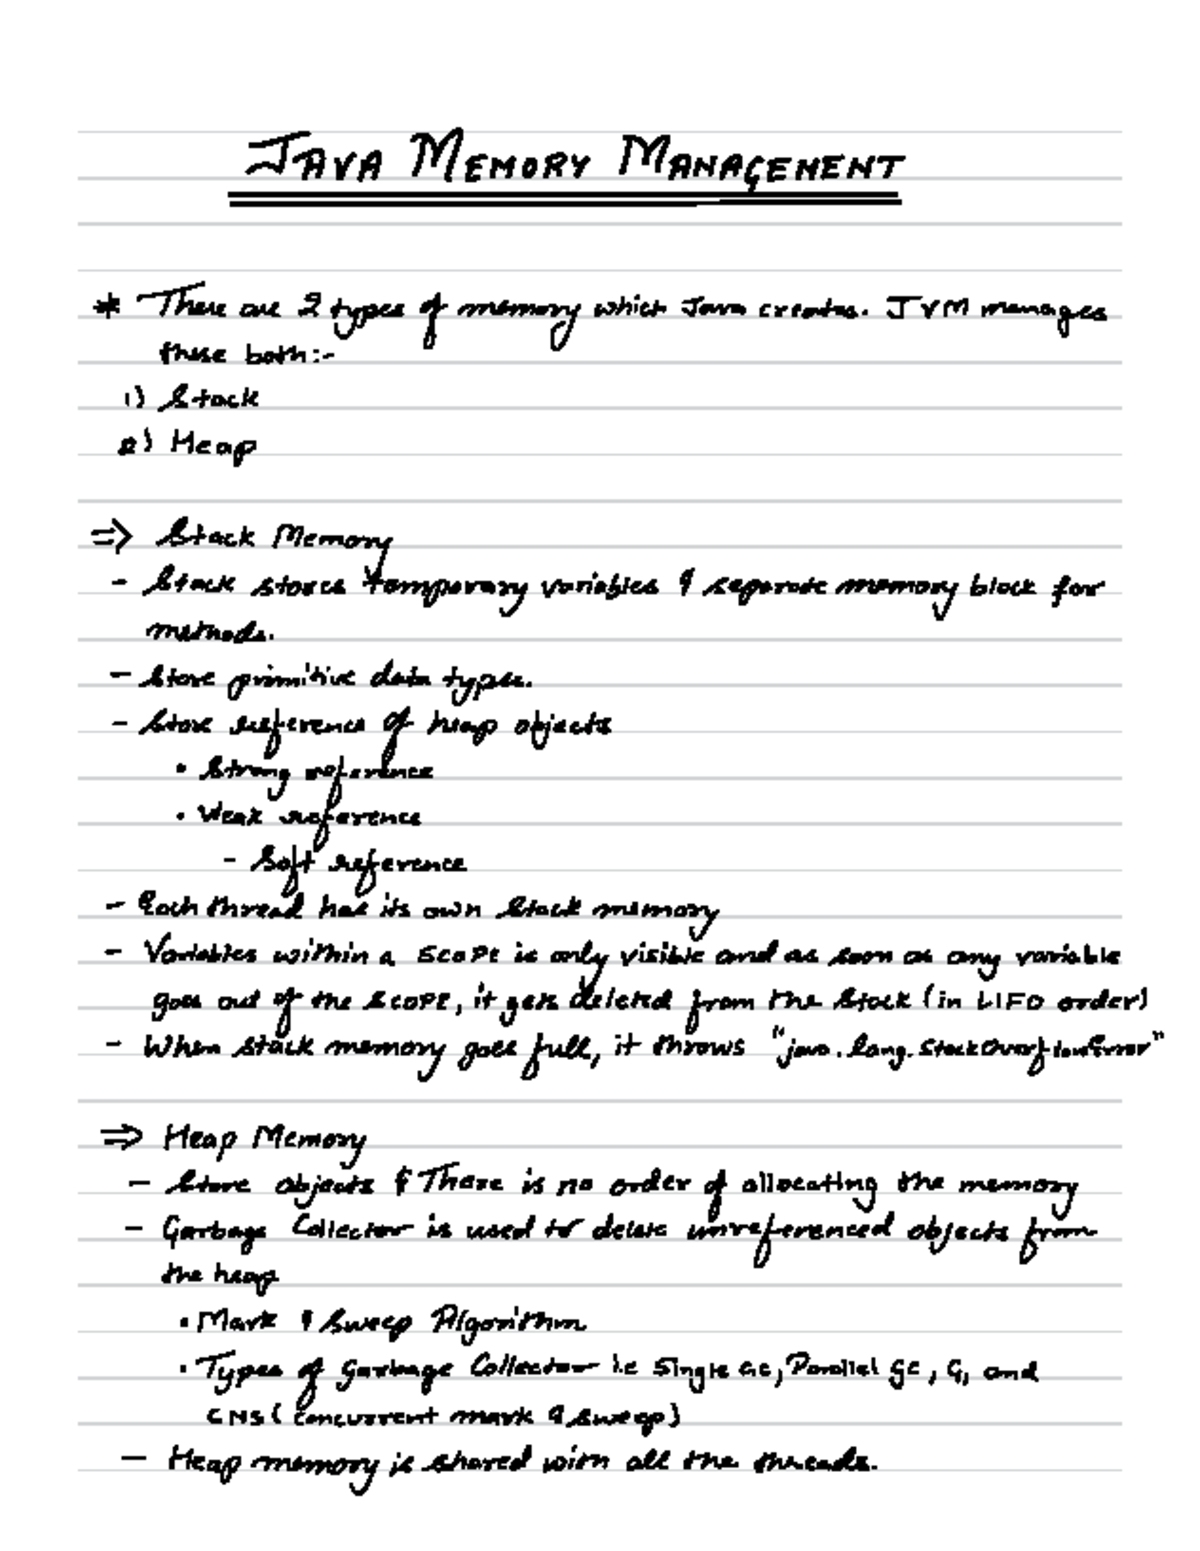 JAVA MEMORY MANAGEMENT
* There are 2 types of memory which Java creates. JVM manages
these both:-
1) Stack
2) Heap
⇒ Stack Memory
- Stack stores temporary variables & separate memory block for
methods.
- Store primitive data types.
- Store reference of heap objects
• Strong reference
• Weak reference
- Soft reference
- Each thread has its own Stack memory
- Variables within a SCOPE is only visible and as soon as any variable
goes out of the SCOPE, it gets deleted from the Stack (in LIFO order)
- When stack memory goes full, it throws "java.lang.StackOverflowError"
⇒ Heap Memory
- Store objects & There is no order of allocating the memory
- Garbage Collector is used to delete unreferenced objects from
the heap
• Mark & Sweep Algorithm
• Types of Garbage Collector i.e Single GC, Parallel GC, G1 and
CMS (concurrent mark & sweep)
- Heap memory is shared with all the threads.